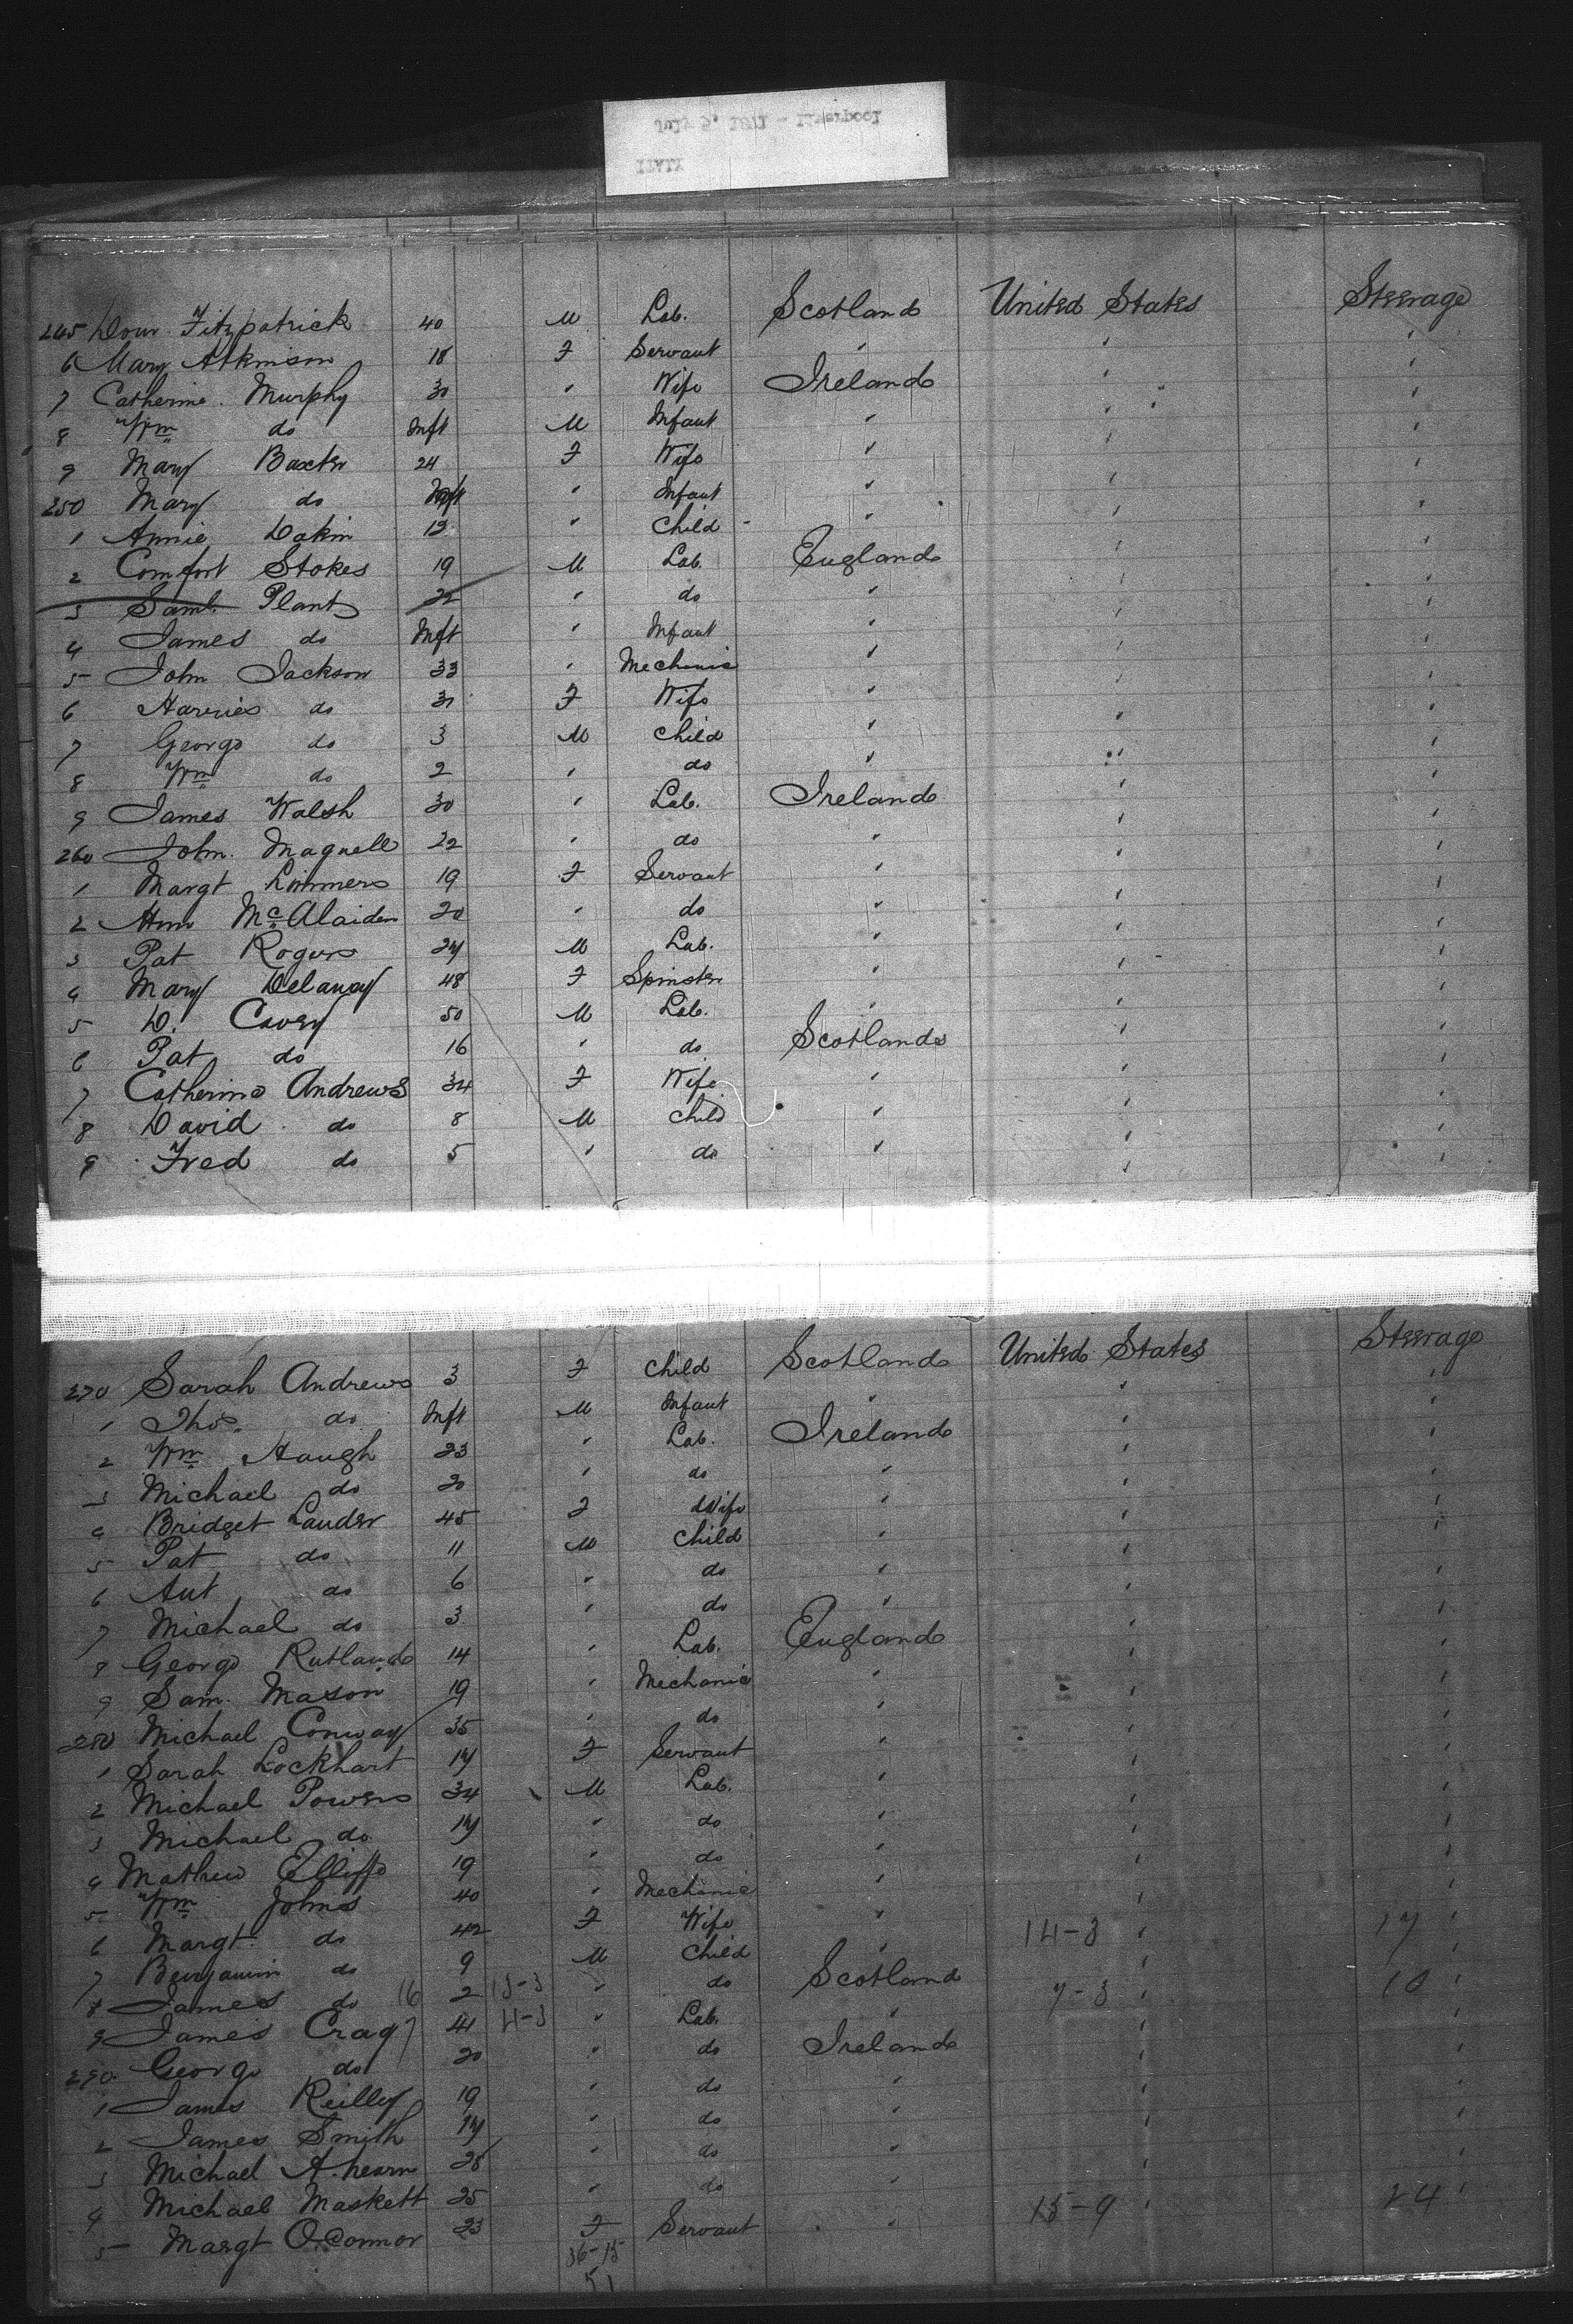 245 Dour Fitzpatrick 40 M Lab. Scotland United States Steerage
6 Mary Atkinson 18 F Servant " " "
7 Catherine Murphy 30 " Wife Ireland " "
8 Wm do Inft M Infant " " "
9 Mary Baxter 24 F Wife " " "
250 Mary do Inft " Infant " " "
1 Annie Dakin 12 " Child " " "
2 Comfort Stokes 19 M Lab. England " "
3 Saml. Plant 22 " do " " "
4 James do Inft " Infant " " "
5 John Jackson 33 " Mechanic " " "
6 do 31 F Wife " " "
7 George do 3 M Child " " "
8 Wm do 2 " do " " "
9 James Walsh 30 " Lab. Ireland " "
260 John Magnell 22 " do " " "
1 Margt 19 F Servant " " "
2 Ann McAlaiden 20 " do " " "
3 Pat Rogers 24 M Lab. " " "
4 Mary Delaney 48 F Spinster " " "
5 D. Cavey 50 M Lab. " " "
6 Pat do 16 " do Scotland " "
7 Catherine Andrews 34 F Wife " " "
8 David do 8 M Child " " "
9 Fred do 5 " do " " "
270 Sarah Andrews 3 F Child Scotland United States Steerage
1 Thos. do Inft M Infant " " "
2 Wm Haugh 23 " Lab. Ireland " "
3 Michael do 20 " do " " "
4 Bridget Lauder 45 F Wife " " "
5 Pat do 11 M Child " " "
6 Ant do 6 " do " " "
7 Michael do 3 " do " " "
8 George Rutland 14 " Lab. England " "
9 Sam. Mason 19 " Mechanic " " "
280 Michael Conway 35 " do " " "
1 Sarah Lockhart 17 F Servant " " "
2 Michael Powers 34 M Lab. " " "
3 Michael do 17 " do " " "
4 Mathew 19 " do " " "
5 Wm Johns 40 " Mechanic " " "
6 Margt. do 42 F Wife " 14-3 " 17 "
7 Benjamin do 9 M Child " " "
8 James do 16 2 13-3 " do Scotland 7-3 " 10 "
9 James Crag 7 41 4-3 " Lab. " " "
290 George do 20 " do Ireland " "
1 James Reilly 19 " do " " "
2 James Smith 17 " do " " "
3 Michael A.hearn 28 " do " " "
4 Michael Maskett 25 " do " 15-9 " 24 "
5 Margt O.Connor 23 F Servant "
36-15
51